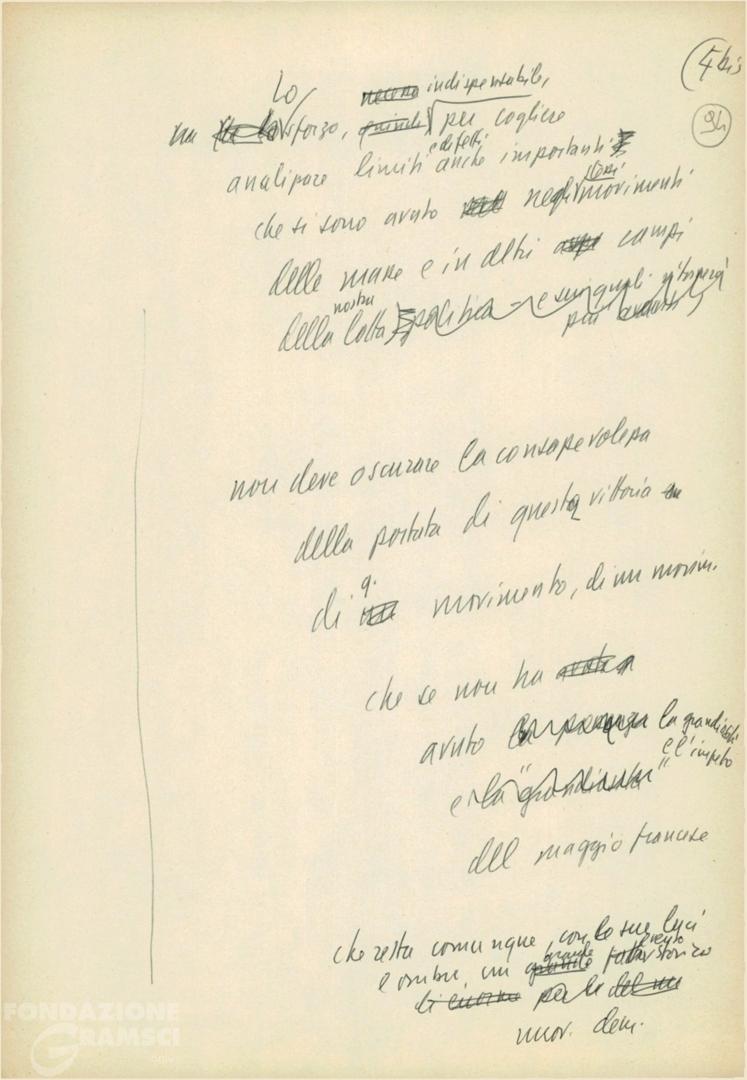 (5 bis
34
Lo
ma sforzo, indispensabile, per cogliere
analizzare limiti e difetti anche importanti
che si sono avuti negli stessi movimenti
delle masse e in altri campi
della nostra lotta politica – e sui quali
più
non deve oscurare la consapevolezza
della portata di questa vittoria
di q. movimento, di un movim.
che se non ha
avuto la grandiosità
e l'impeto
e la "grandiosità"
del maggio francese
che resta comunque, con le sue luci
e ombre, un grande evento storico
per le
nuov. dem.
FONDAZIONE
GRAMSCI